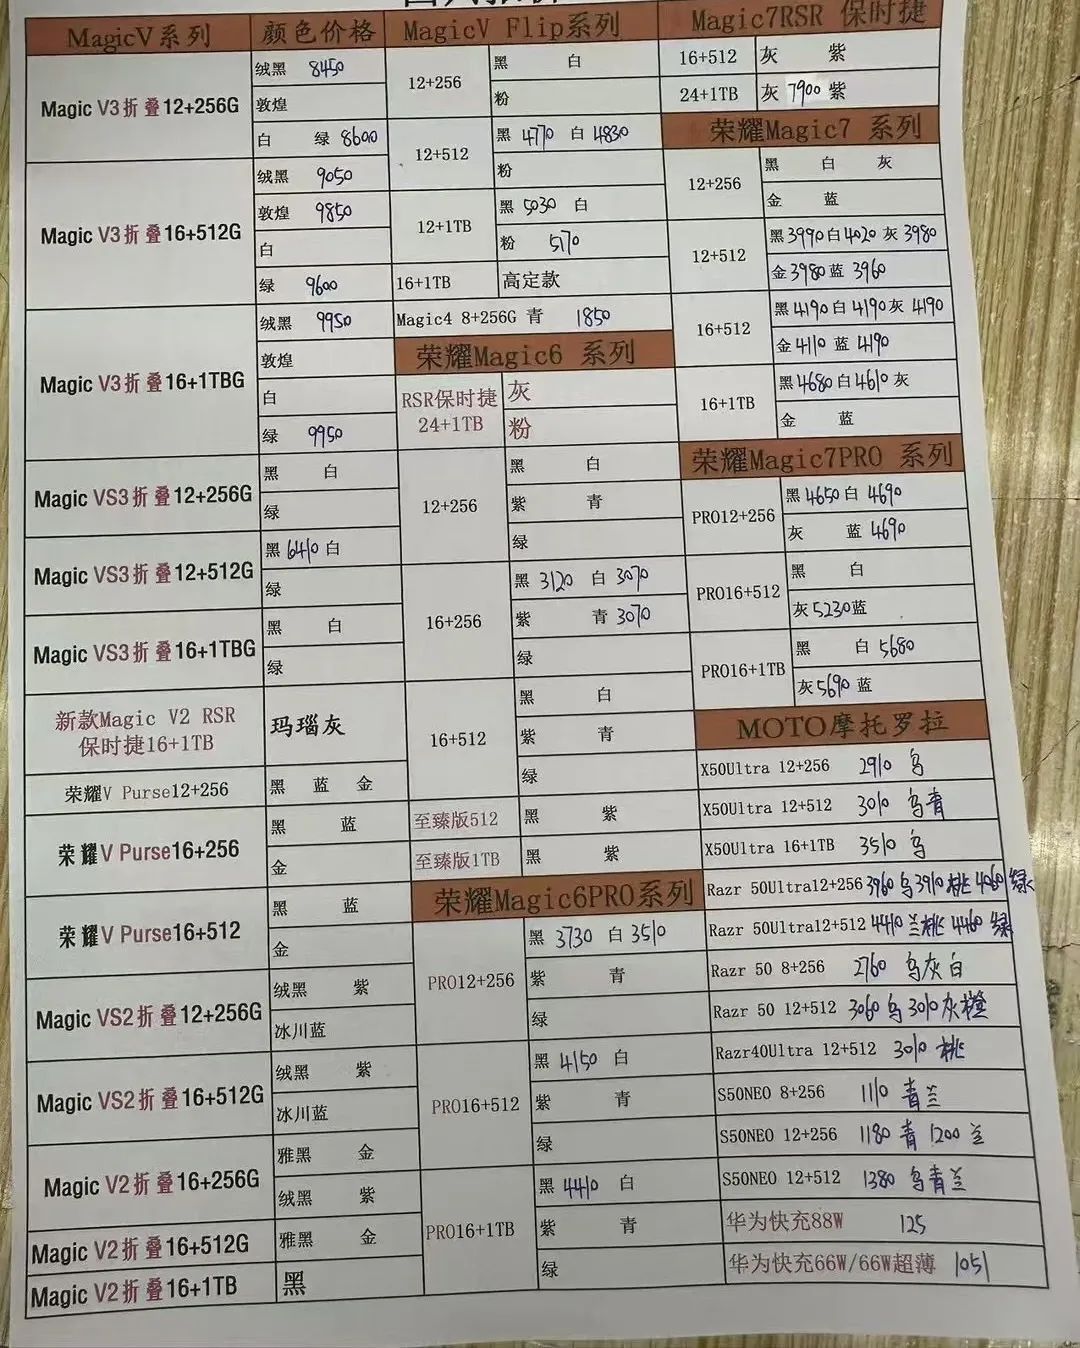 MagicV系列 颜色价格
Magic V3折叠12+256G
绒黑 8450
敦煌
白 绿 8600
Magic V3折叠16+512G
绒黑 9050
敦煌 9850
白
绿 9600
Magic V3折叠16+1TBG
绒黑 9950
敦煌
白
绿 9950
Magic VS3折叠12+256G
黑 白
绿
Magic VS3折叠12+512G
黑 6410 白
绿
Magic VS3折叠16+1TBG
黑 白
绿
新款Magic V2 RSR
保时捷16+1TB
玛瑙灰
荣耀V Purse12+256
黑 蓝 金
荣耀V Purse16+256
黑 蓝
金
荣耀V Purse16+512
黑 蓝
金
Magic VS2折叠12+256G
绒黑 紫
冰川蓝
Magic VS2折叠16+512G
绒黑 紫
冰川蓝
Magic V2折叠16+256G
雅黑 金
绒黑 紫
Magic V2折叠16+512G
雅黑 金
Magic V2折叠16+1TB
黑
MagicV Flip系列
12+256
黑 白
粉
12+512
黑 4770 白 4830
粉
12+1TB
黑 5030 白
粉 5170
16+1TB 高定款
Magic4 8+256G 青 1850
荣耀Magic6 系列
RSR保时捷
24+1TB
灰
粉
12+256
黑 白
紫 青
绿
16+256
黑 3120 白 3070
紫 青 3070
绿
16+512
黑 白
紫 青
绿
至臻版512 黑 紫
至臻版1TB 黑 紫
荣耀Magic6PRO系列
PRO12+256
黑 3730 白 3510
紫 青
绿
PRO16+512
黑 4150 白
紫 青
绿
PRO16+1TB
黑 4410 白
紫 青
绿
Magic7RSR 保时捷
16+512 灰 紫
24+1TB 灰 7900 紫
荣耀Magic7 系列
12+256
黑 白 灰
金 蓝
12+512
黑 3990 白 4020 灰 3980
金 3980 蓝 3960
16+512
黑 4190 白 4190 灰 4190
金 4110 蓝 4190
16+1TB
黑 4680 白 4610 灰
金 蓝
荣耀Magic7PRO 系列
PRO12+256
黑 4650 白 4690
灰 蓝 4690
PRO16+512
黑 白
灰 5230 蓝
PRO16+1TB
黑 白 5680
灰 5690 蓝
MOTO摩托罗拉
X50Ultra 12+256 2910 乌
X50Ultra 12+512 3010 乌青
X50Ultra 16+1TB 3510 乌
Razr 50Ultra12+256 3960 乌 3910 桃 4060 绿
Razr 50Ultra12+512 4410 兰桃 4460 绿
Razr 50 8+256 2760 乌灰白
Razr 50 12+512 3060 乌 3010 灰橙
Razr40Ultra 12+512 3010 桃
S50NEO 8+256 1110 青兰
S50NEO 12+256 1180 青 1200 兰
S50NEO 12+512 1380 乌青兰
华为快充88W 125
华为快充66W/66W超薄 1051